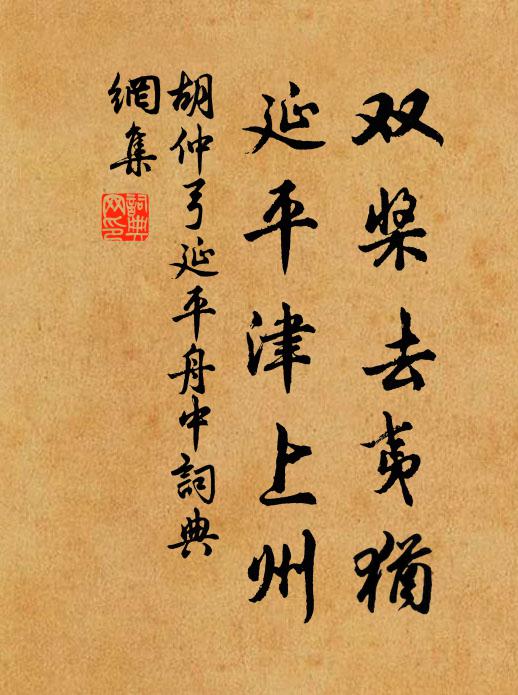 双桨去夷犹
延平津上州
胡仲弓延平舟中詞典
網集
詞典
网印